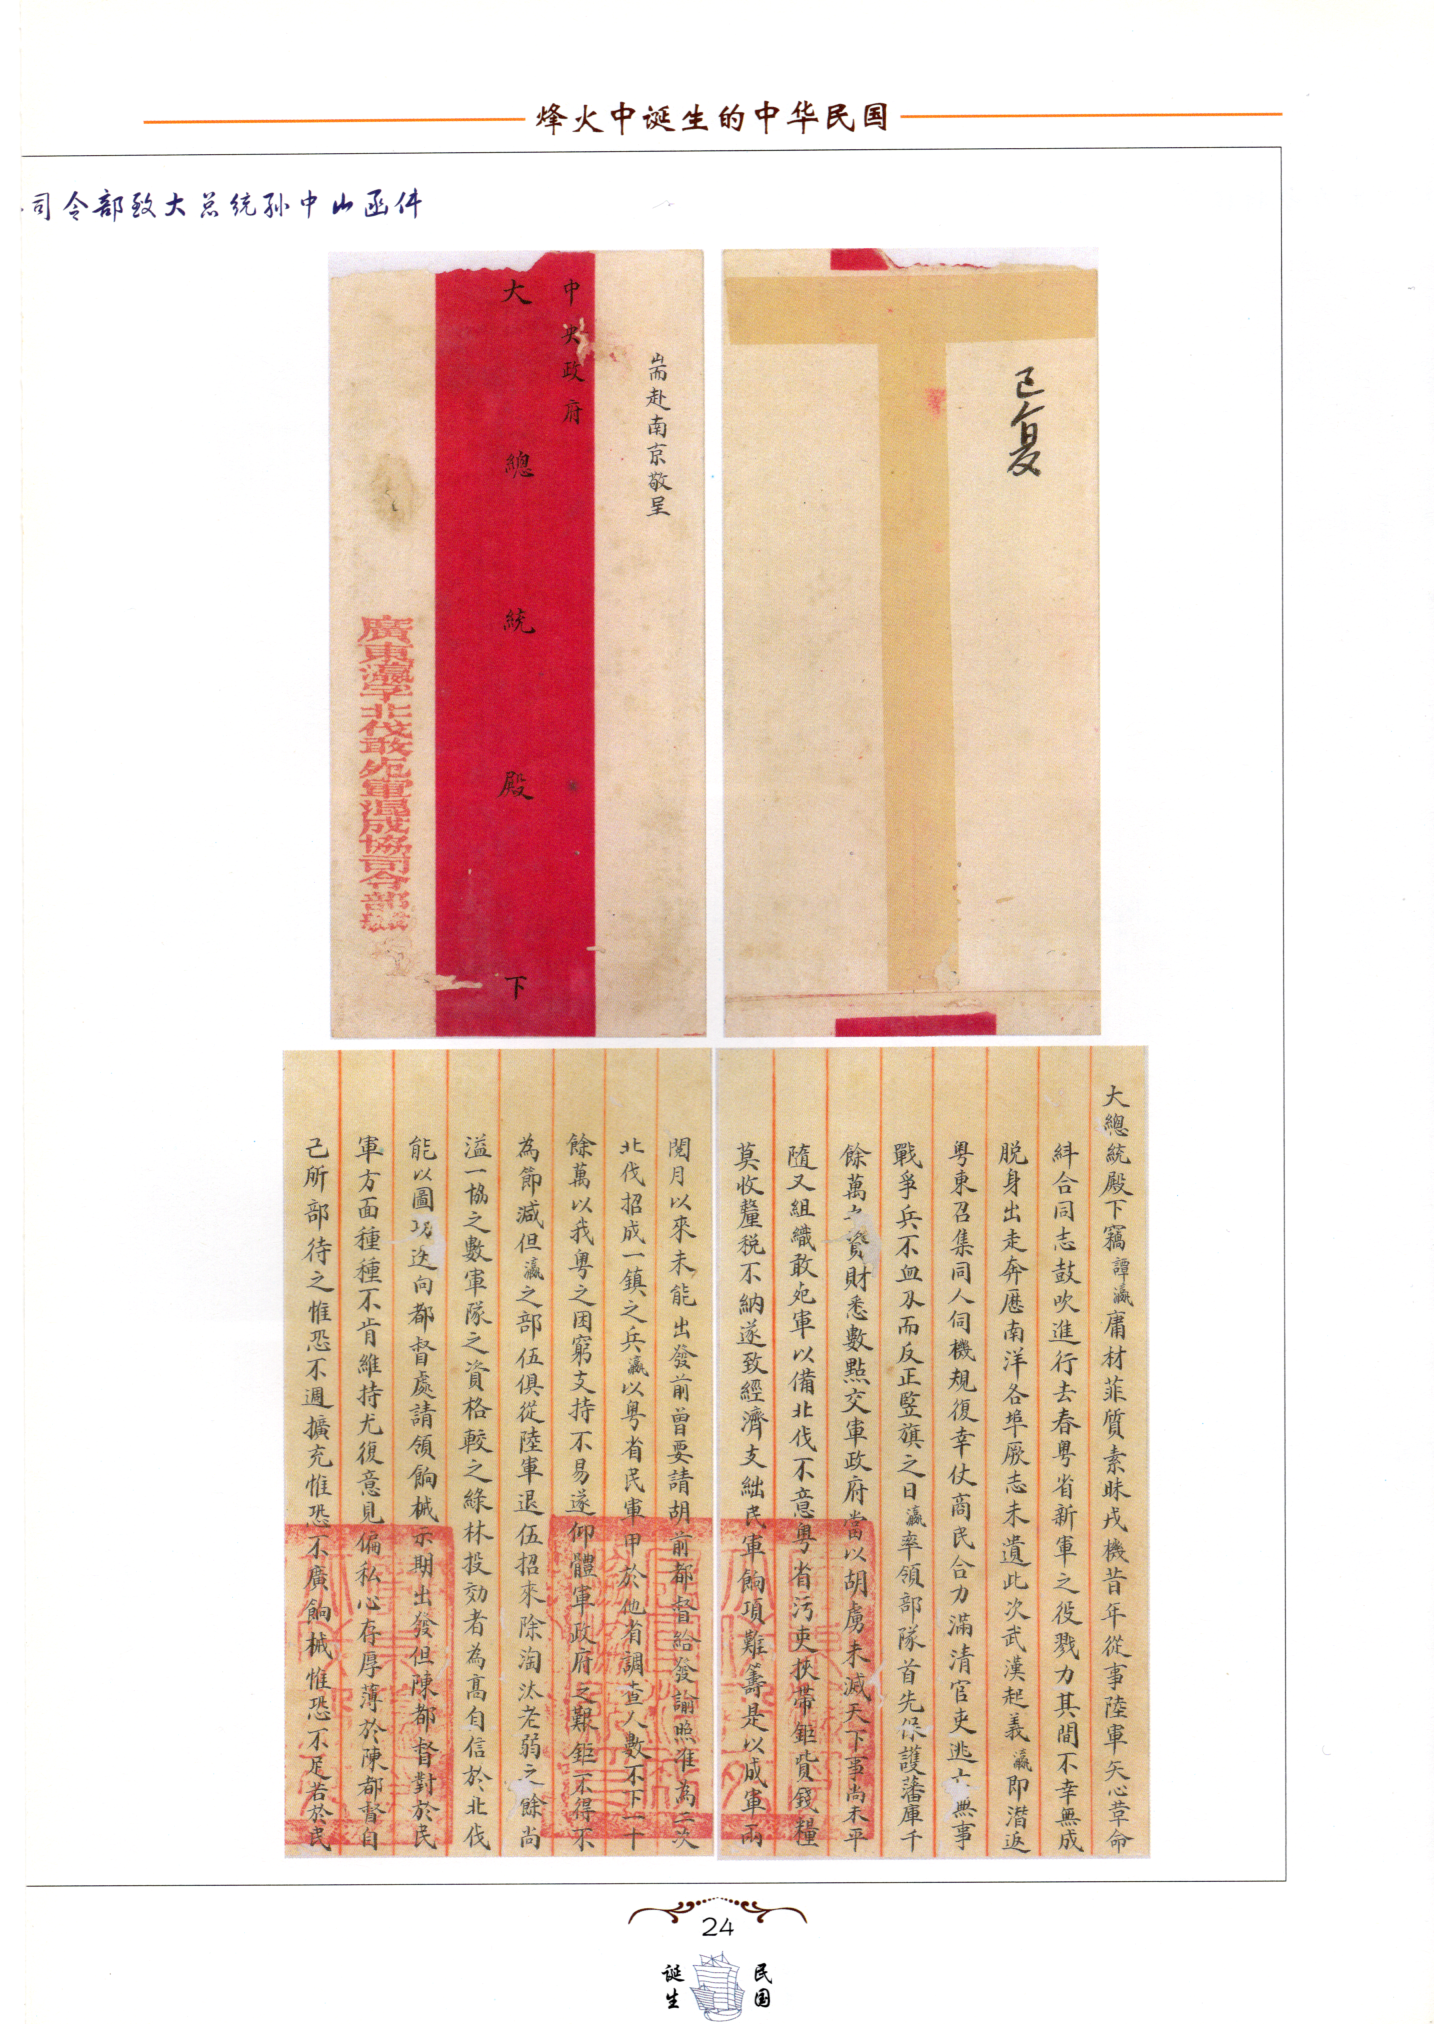 烽火中诞生的中华民国
司令部致大总统孙中山函件
耑赴南京敬呈
中央政府
大總統殿下
廣東瀛字北伐敢死軍混成協司令部
已复
大總統殿下竊譚瀛庸材菲質素昧戎機昔年從事陸軍矢心革命
糾合同志鼓吹進行去春粤省新軍之役戮力其間不幸無成
脱身出走奔歷南洋各埠厥志未遺此次武漢起義瀛即潛返
粤東召集同人伺機規復幸仗商民合力滿清官吏逃亡無事
戰爭兵不血刃而反正竪旗之日瀛率領部隊首先保護藩庫千
餘萬之資財悉數點交軍政府當以胡虜未滅天下事尚未平
隨又組織敢死軍以備北伐不意粤省污吏挾帶鉅貲錢糧
莫收釐税不納遂致經濟支絀民軍餉項難籌是以成軍兩
閱月以來未能出發前曾要請胡前都督給發諭照准為二次
北伐招成一鎮之兵瀛以粤省民軍甲於他省調查人數不下一十
餘萬以我粤之困窮支持不易遂仰體軍政府之艱鉅不得不
為節減但瀛之部伍俱從陸軍退伍招來除淘汰老弱之餘尚
溢一協之數軍隊之資格較之綠林投効者為高自信於北伐
能以圖功迭向都督處請領餉械示期出發但陳都督對於民
軍方面種種不肯維持尤復意見偏私心存厚薄於陳都督自
己所部待之惟恐不週擴充惟恐不廣餉械惟恐不足若於民
24
诞生
民国